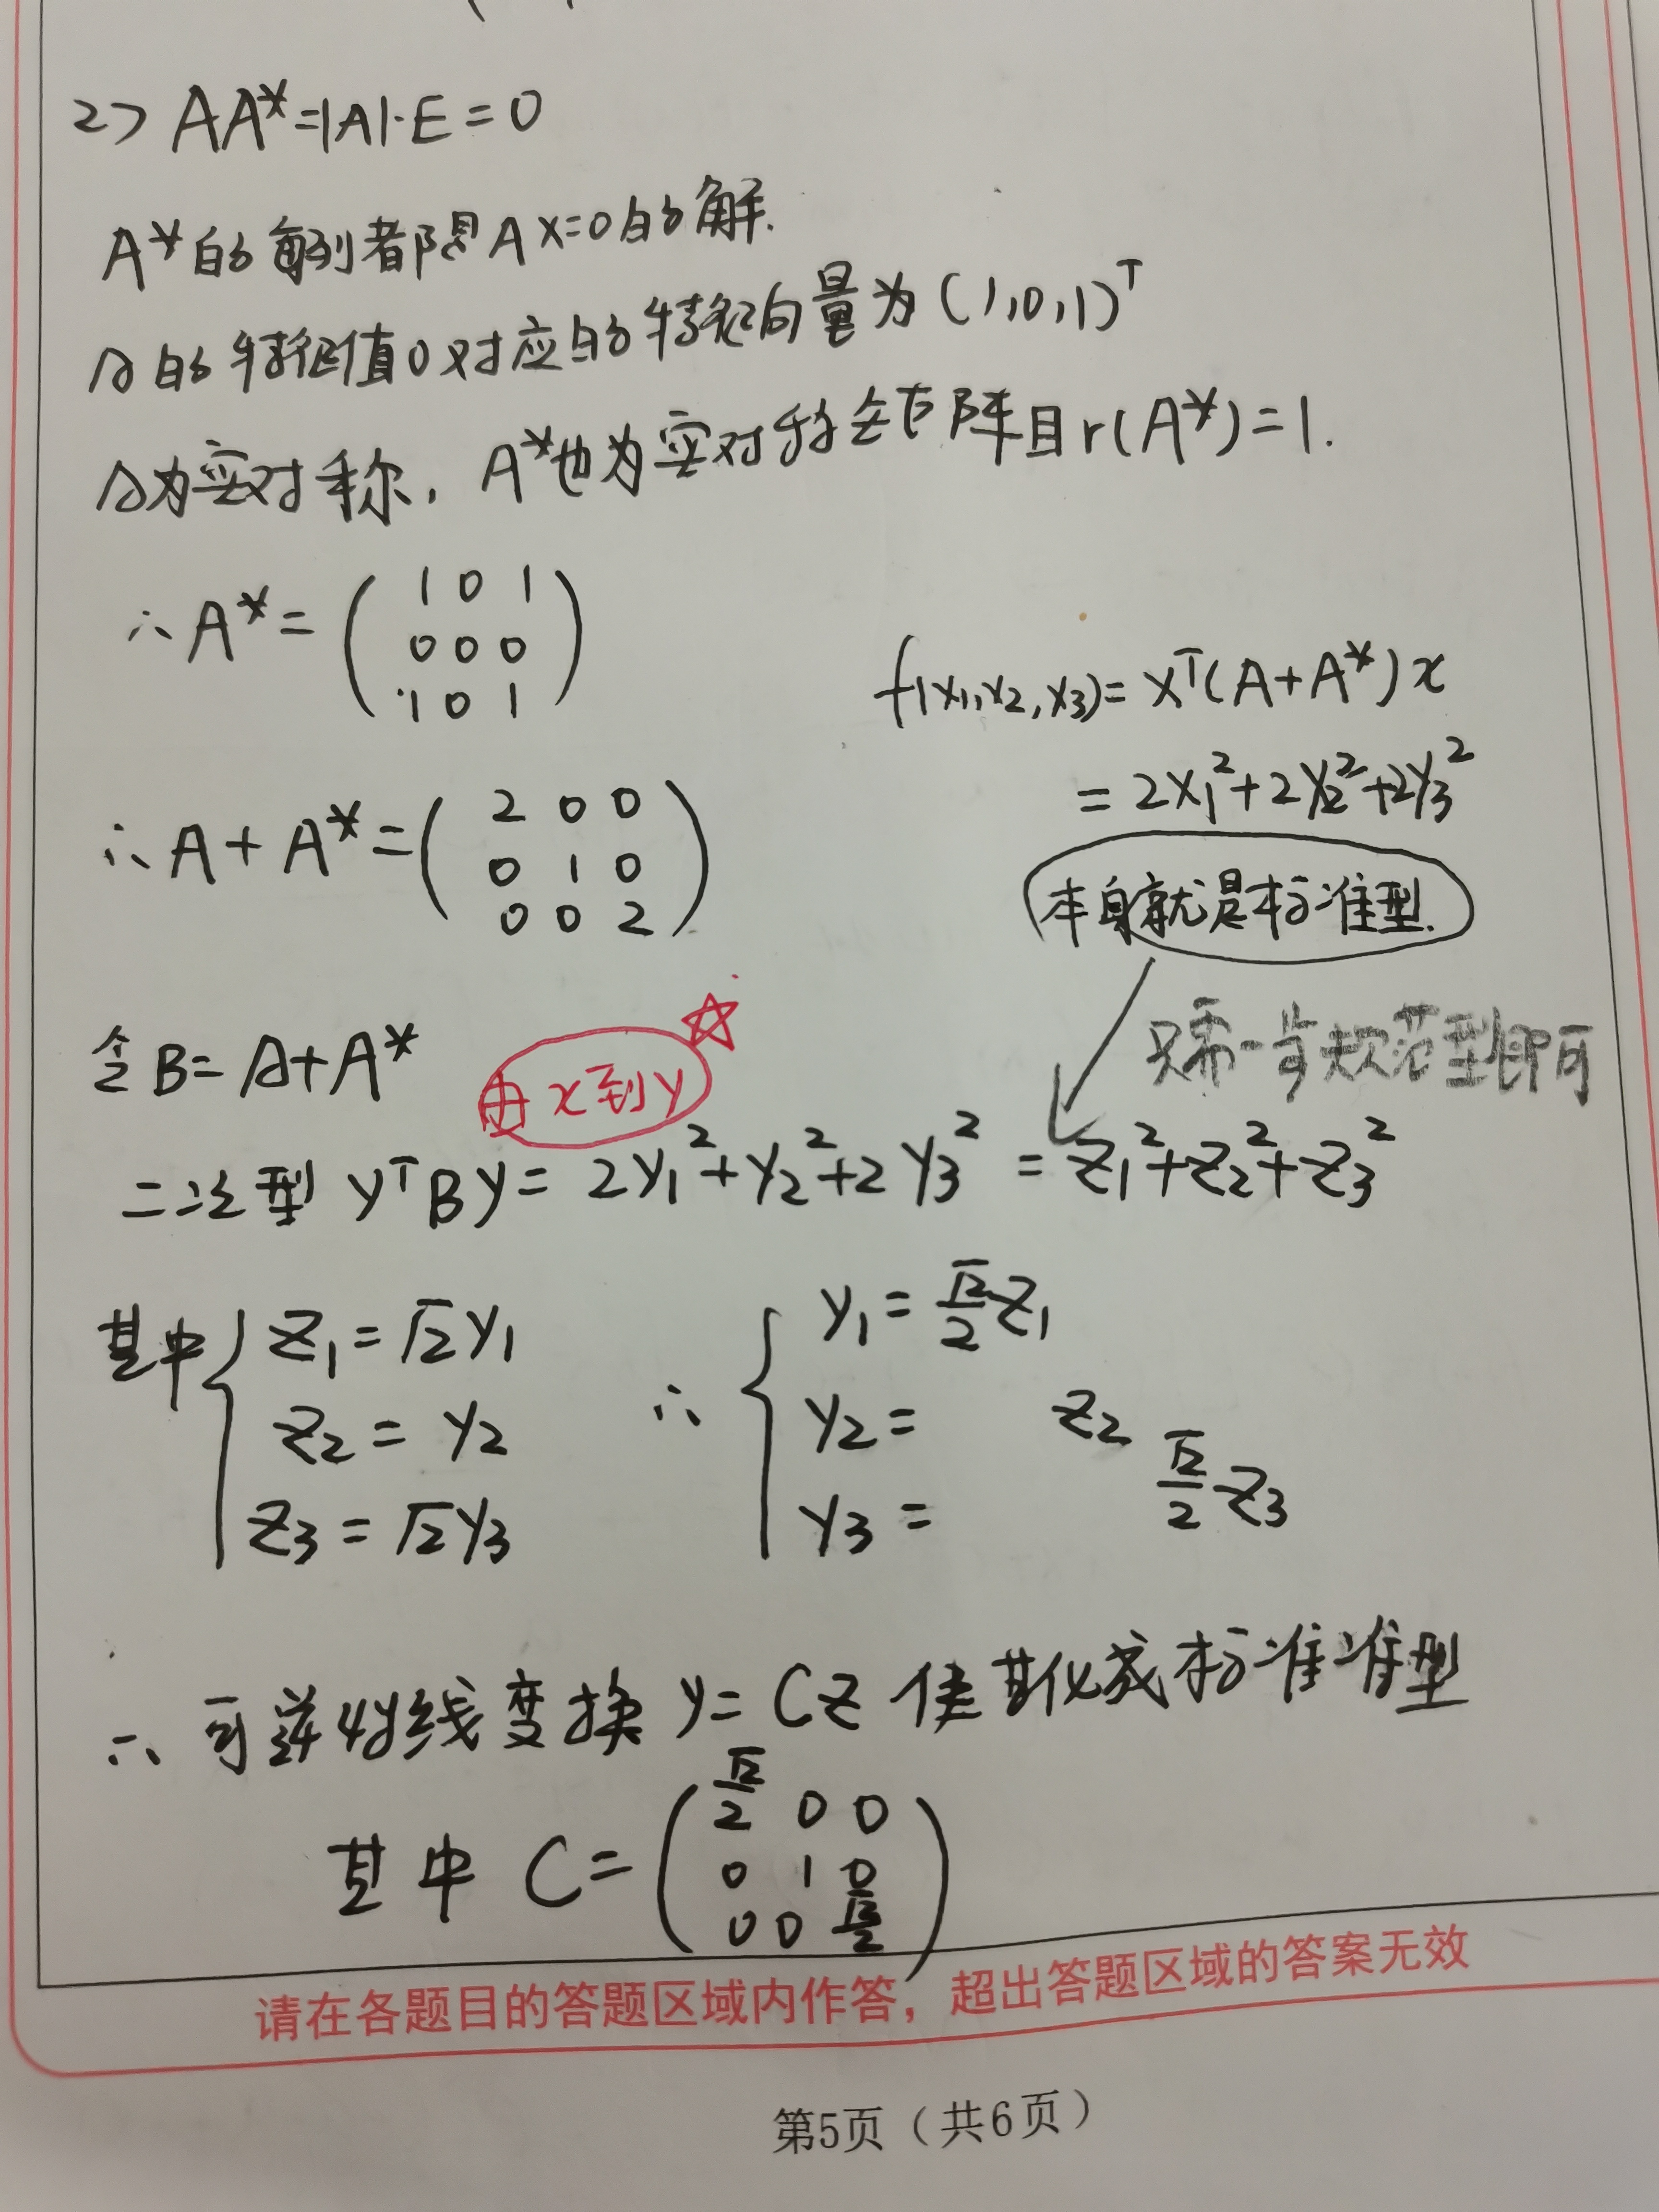 2> AA*=|A|·E=0
A*的每列都是AX=0的解.
A的特征值0对应的特征向量为(1,0,1)ᵀ
A为实对称,A*也为实对称矩阵且r(A*)=1.
∴A*=
1 0 1
0 0 0
1 0 1
f(x₁,x₂,x₃)=xᵀ(A+A*)x
=2x₁²+2x₂²+2x₃²
本身就是标准型.
∴A+A*=
2 0 0
0 1 0
0 0 2
只需一步规范型即可
令B=A+A*
由x到y
二次型 yᵀBy=2y₁²+y₂²+2y₃²=z₁²+z₂²+z₃²
其中
z₁=√2y₁
z₂=y₂
z₃=√2y₃
∴
y₁=√2/2 z₁
y₂= z₂
y₃= √2/2 z₃
∴可逆线变换y=Cz使其化成标准准型
其中C=
√2/2 0 0
0 1 0
0 0 √2/2
请在各题目的答题区域内作答，超出答题区域的答案无效
第5页（共6页）